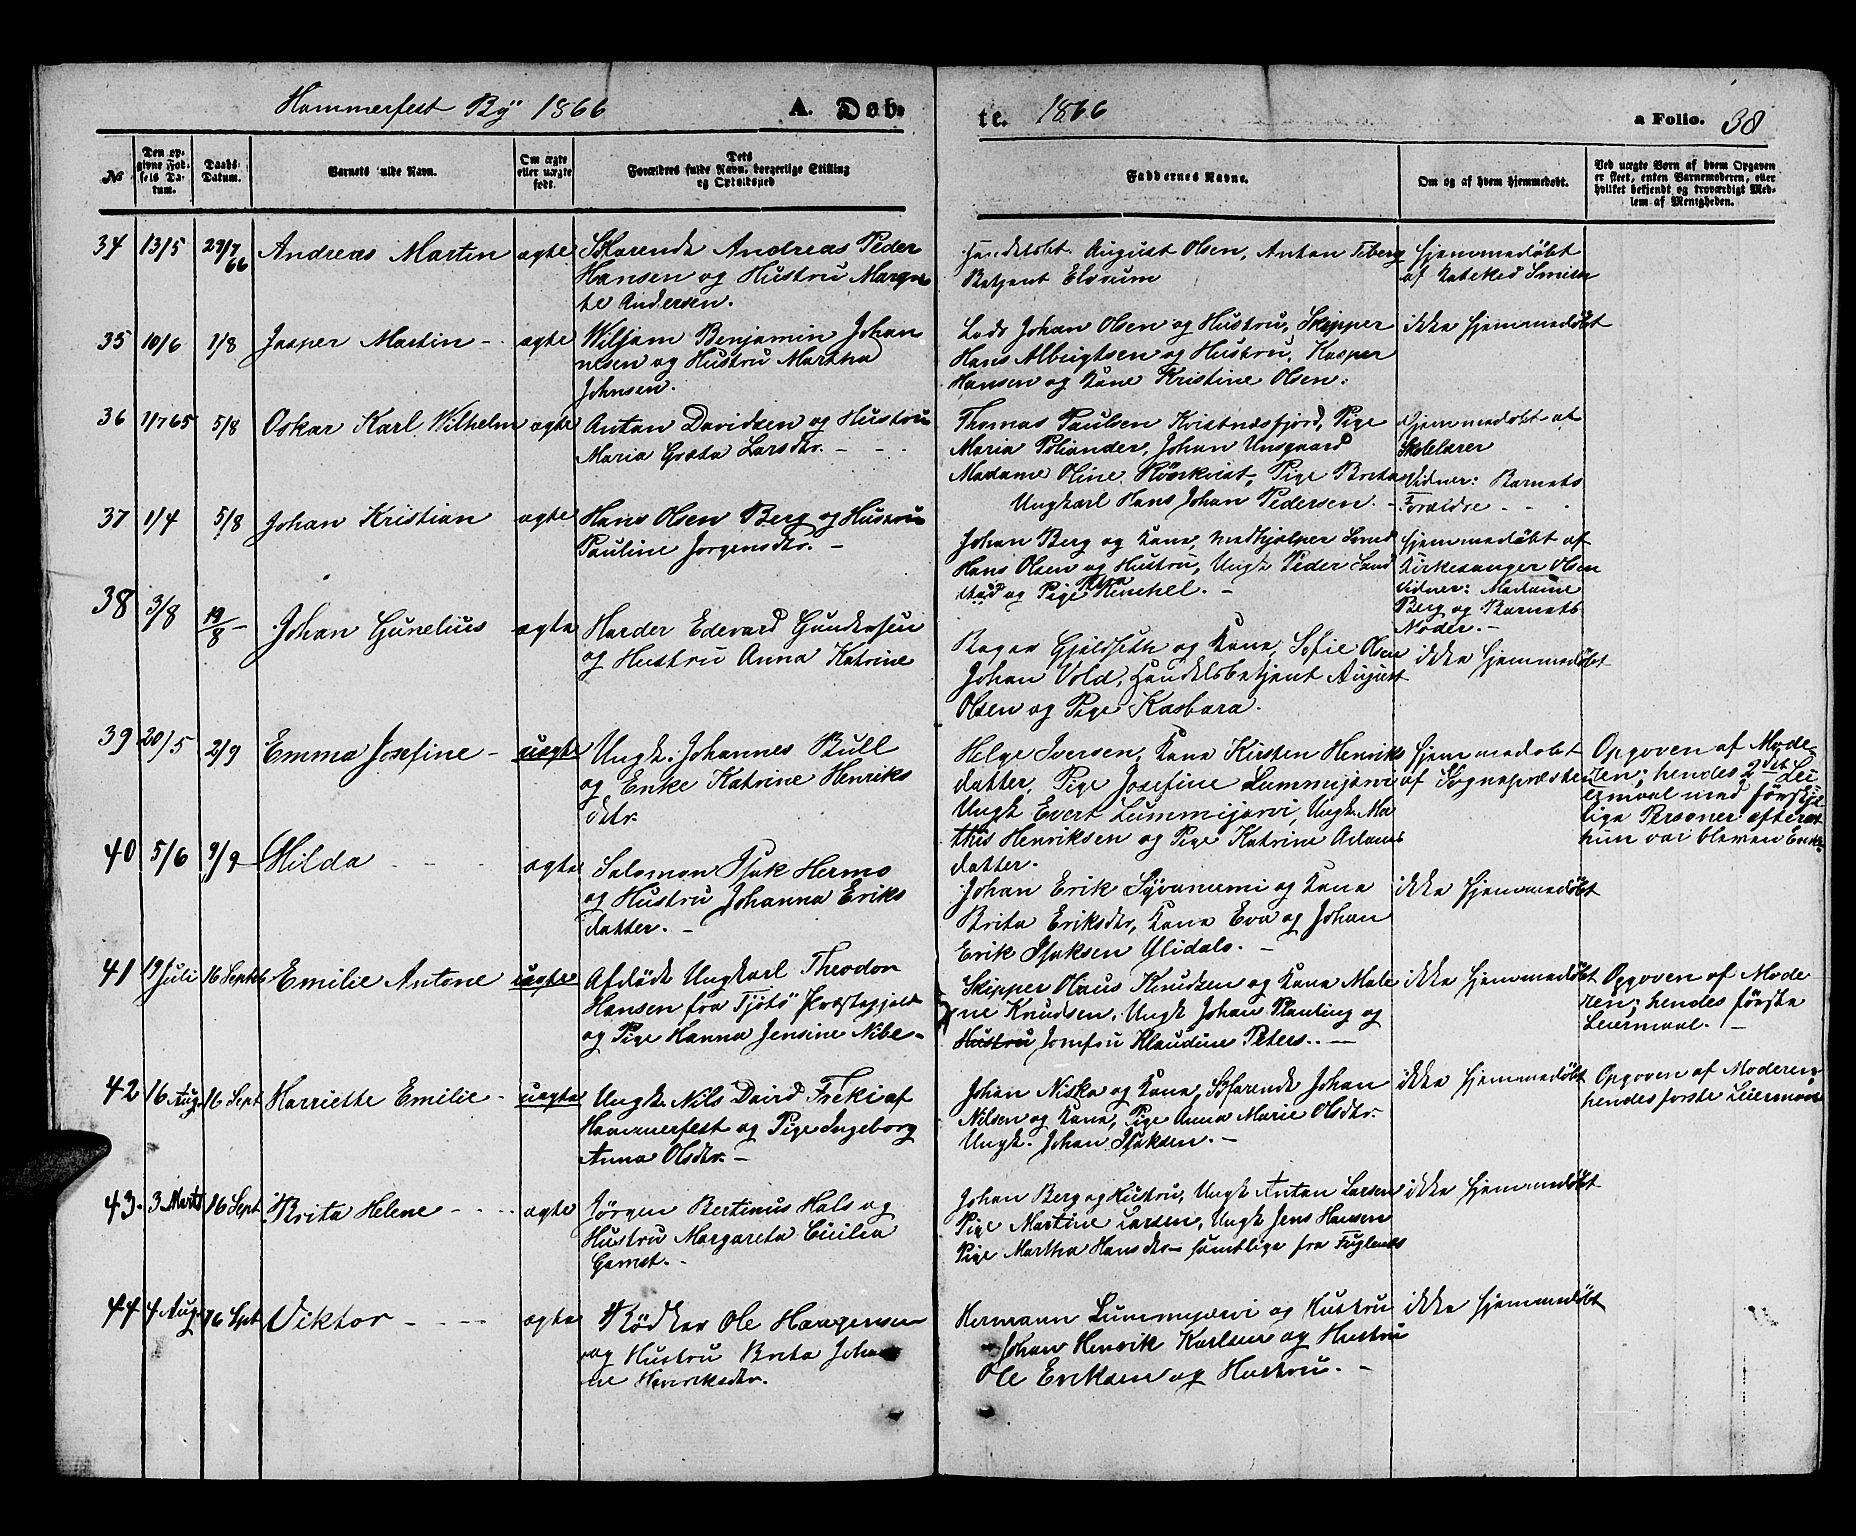 Hammerfest By 1866 A. Døb-
te. 1866 a Folio. 38
No
Den op-
givne Fød-
sels Da-
tum.
Daabs-
Datum.
Barnets fulde Navn.
Om ægte
eller uægte
født.
Dets
Forældres fulde Navn, borgerlige Stilling
og Opholdssted
Faddernes Navne.
Om og af hvem hjemmedøbt.
Ved uægte Børn af hvem Opgaven
er skeet, enten Barnemoderen, eller
hvilket bekjendt og troværdigt Med-
lem af Menigheden.
34 13/5 29/7 66 Andreas Martin ægte
Skarende Andreas Peder
Hansen og Hustru Margre
te Andersen.
Handelsbt. August Olsen, Anton Feberg
Betjent Elvrum
Hjemmedøbt
af Kateket Smitt
35 10/6 1/8 Jasper Martin - ægte
Wiljam Benjamin Johan
nesen og Hustru Martha
Johnsen.
Lods Johan Olsen og Hustru, Skipper
Hans Albrigtsen og Hustru, Kasper
Hansen og Kone Kristine Olsen.
ikke hjemmedøbt
36 1/7 65 5/8 Oskar Karl Wilhelm ægte
Anton Davidsen og Hustru
Maria Græta Larsdtr. - -
Thomas Paulsen Kvistnæsfjord, Pige
Maria Poliander, Johan Ungaard
Madame Oline Rönkvist, Pige Brita
Ungkarl Hans Johan Pedersen. -
Hjemmedøbt af
Skolelærer
Vidner: Barnets
Forældre - -
37 1/4 5/8 Johan Kristian ægte
Hans Olsen Berg og Hustru
Pauline Jørgensdtr. -
Johan Berg og Kone, Medhjelper
Hans Olsen og Hustru, Ungk Peder Sand
stad og Pige Henchel. -
Hjemmedøbt af
Kirkesanger Olsen
Vidner: Madame
Berg og Barnets
Moder. -
38 3/8 19/8 - Johan Gunelius ægte
Harder Edevard Gundersen
og Hustru Anna Katrine
Bager Gjeldseth og Kone, Sofie Olsen
Johan Vold, Handelsbetjent August
Olsen og Pige Kasbara.
ikke hjemmedøbt
39 20/5 2/9 Emma Josefine - uægte
Ungk. Johannes Bull
og Enke Katrine Henriks
dtr.
Helge Iversen, Kone Kirsten Henriks
datter, Pige Josefine Lummijervi
Ungk Evert Lummijervi, Ungk. Ma
this Henriksen og Pige Katrine Adams
datter.
Hjemmedøbt
af Sognepræsten
Opgoven af Mode-
ren; hendes 2det Lei
ermaal med forskjel
lige Personer efterat
hun var bleven Enke.
40 5/6 9/9 Hilda - - - ægte
Salomon Isak Hermo
og Hustru Johanna Eriks
datter. -
Johan Erik Syvaniemi og Kone
Brita Eriksdtr, Kone Eva og Johan
Erik Isaksen Ylidalo. -
ikke hjemmedøbt
41 19 Juli 16 Septb Emilie Antone uægte
Afdøde Ungkarl Theodor
Hansen fra Tjötö Præstegjeld
og Pige Hanna Jensine Nibe-
Skipper Olaus Knudsen og Kone Male
ne Knudsen. Ungk Johan Planting og
Hustru Jomfru Klaudine Peters. . -
ikke hjemmedøbt
Opgoven af Mode
ren; hendes første
Leiermaal. -
42 16 Aug 16 Sept Harriette Emilie - uægte
Ungk. Nils David Freki af
Hammerfest og Pige Ingeborg
Anna Olsdtr. -
Johan Niska og Kone, Søfarende Johan
Nilsen og Kone, Pige Anna Marie Olsdtr.
Ungk. Johan Isaksen. -
ikke hjemmedøbt
Opgoven af Moderen
hendes første Leiermaal
43. 3 Marts 16 Sept Brita Helene - - - - ægte
Jørgen Bertinus Hals og
Hustru Margareta Cicilia
Gamst. -
Johan Berg og Hustru, Ungk Anton Larsen
Pige Martine Larsen, Ungk Jens Hansen
Pige Martha Hansdtr - samtlige fra Fuglenes
ikke hjemmedøbt
44 4 Aug. 16 Spt Viktor - - - - ægte
Bödker Ole Haagensen
og Hustru Brita Johan
ne Henriksdtr.
Hermann Lummijærvi og Hustru
Johan Henrik Karlsen og Hustru
Ole Eriksen og Hustru. -
ikke hjemmedøbt